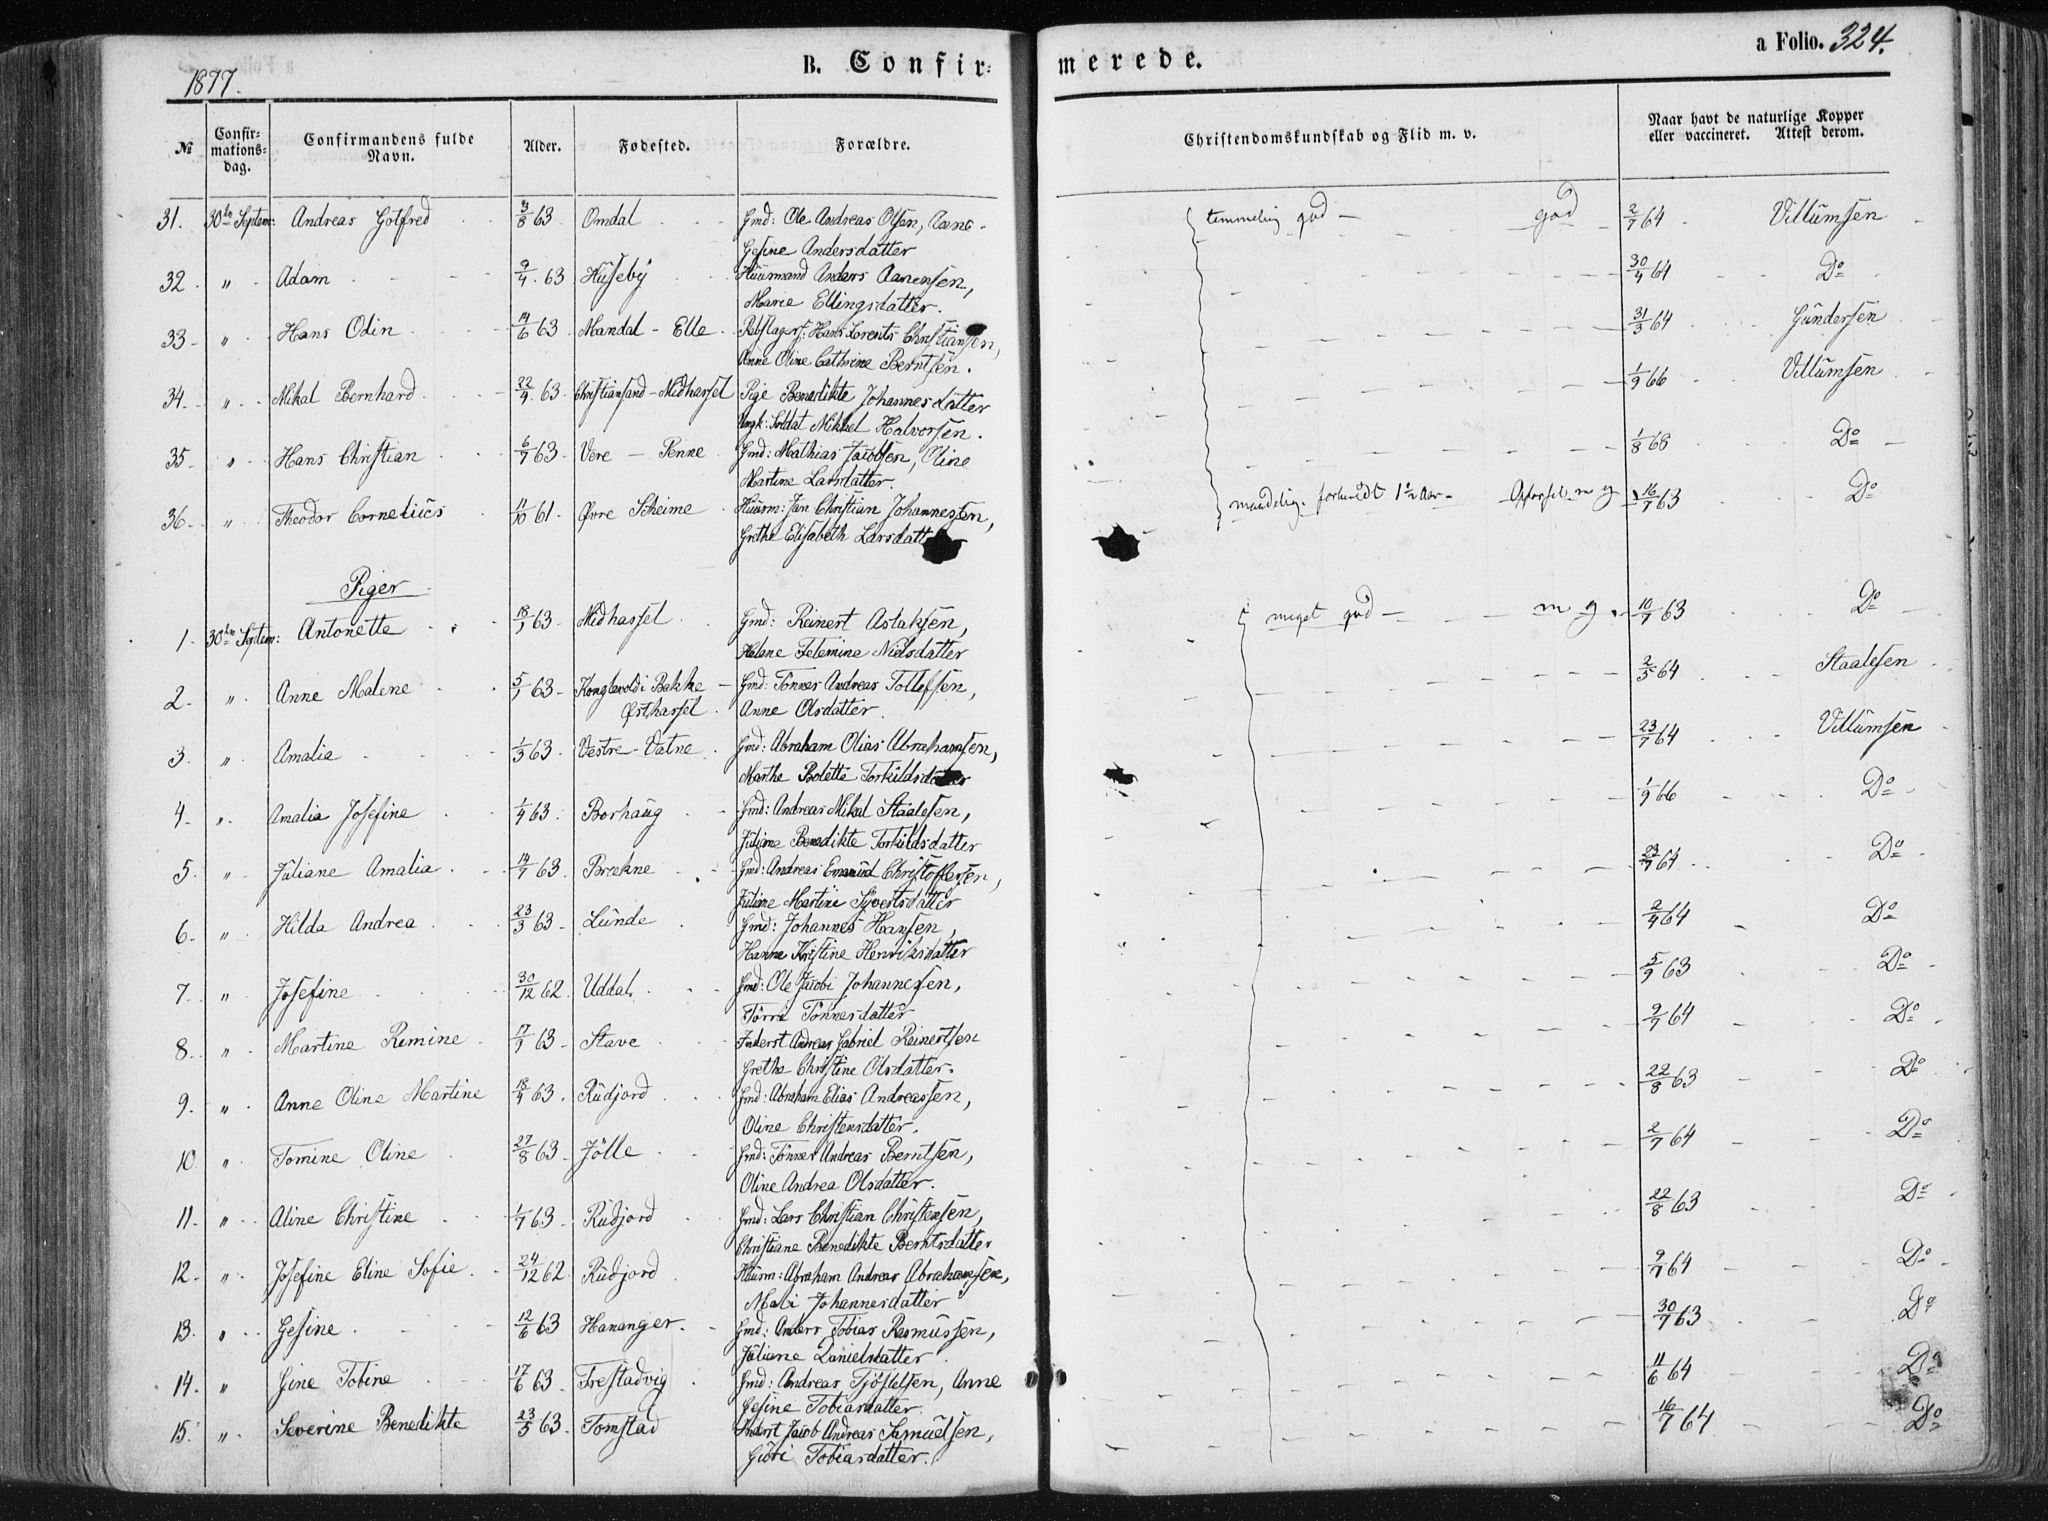 1877.
B. Confirmerede.
a Folio. 324.
№ Confirmations-dag. Confirmandens fulde Navn. Alder. Fødested. Forældre. Christendomskundskab og Flid m. v. Naar havt de naturlige Kopper eller vaccineret. Attest derom.
31. 30te Septem: Andreas Gotfred 3/8 63 Omdal Gmd: Ole Andreas Olsen, temmelig god — god 2/7 64 Villumsen
Gesine Andersdatter
32. " Adam 9/4 63 Huseby Huusmand Anders Aanensen, 30/4 64 Do
Marie Ellingsdatter.
33. " Hans Odin 14/6 63 Mandal - Elle Rebslagersv: Hans Lorents Christiansen, 31/3 64 Gundersen
Anne Oline Cathrine Berntsen.
34. " Mikal Bernhard 22/4 63 Christiansand - Midhassel Pige Benedikte Johannesdatter 1/9 66 Villumsen
Ungk: Soldat Mikkel Halvorsen.
35. " Hans Christian 6/7 63 Vere - Penne Gmd: Mathias Jacobsen, Oline 1/8 68 Do
Martine Larsdatter.
36. " Theodor Cornelius 11/10 61 Øvre Scheime Huusm: Jen Christian Johannessen, maadelig. forberedt 1½ Aar - Opførsel m g 16/7 63 Do
Grethe Elisabeth Larsdatt
Piger
1. 30te Septem: Antonette 18/1 63 Midhassel Gmd: Reinert Aslaksen, meget god — m g. 10/7 63 Do
Helene Telemine Nielsdatter
2. " Anne Malene 5/1 63 Konglevold i Bakke - Gmd: Tønnes Andreas Tollefsen, 2/5 64 Staalesen
Østhassel. Anne Olsdatter.
3. " Amalia 1/3 63 Vestre-Vatne Gmd: Abraham Olias Abrahamsen, 23/7 64 Villumsen
Marthe Bolette Torkildsdatter
4. " Amalia Josefine 1/4 63 Borhaug Gmd: Andreas Mikal Staalesen, 1/9 66 Do
Juliane Benedikte Torkildsdatter
5. " Juliane Amalia 14/7 63 Brækne Gmd: Andreas Emanuel Christoffersen, 23/7 64 Do
Juliane Martine Sivertsdatter
6. " Hilda Andrea 23/3 63 Lunde Gmd: Johannes Hansen, 2/4 64 Do
Hanne Kristine Henriksdatter
7. " Josefine 30/12 62 Uddal. Gmd: Ole Jacobi Johannesen, 5/9 63 Do
Tørri Tönnesdatter
8. " Martine Remine 17/1 63 Stave Inderst Andreas Gabriel Reinertsen 9/7 64 Do
Grethe Christine Olsdatter.
9. " Anne Oline Martine 18/4 63 Rudjord Gmd: Abraham Elias Andreassen, 22/8 63 Do
Oline Christensdatter.
10. " Tomine Oline 27/8 63 Jölle Gmd: Tönnes Andreas Berntsen, 2/7 64 Do
Oline Andrea Olsdatter.
11. " Aline Christine 1/7 63 Rudjord Gmd: Lars Christian Christensen, 22/8 63 Do
Christiane Benedikte Berntsdatter
12. " Josefine Eline Sofie 24/12 62 Rudjord Huusm: Abraham Andreas Abrahamsen, 9/7 64 Do
Mali Johannesdatter
13. " Gesine 12/6 63 Hananger Gmd: Anders Tobias Rasmussen, 30/7 63 Do
Juliane Danielsdatter
14. " Gine Tobine 17/6 63 Frestadvig Gmd: Andreas Tjöstelsen, Anne 11/6 64 Do
Gesine Tobiasdatter.
15. " Severine Benedikte 23/5 63 Tomstad Inderst Jacob Andreas Samuelsen, 16/7 64 Do
Giöri Tobiasdatter.